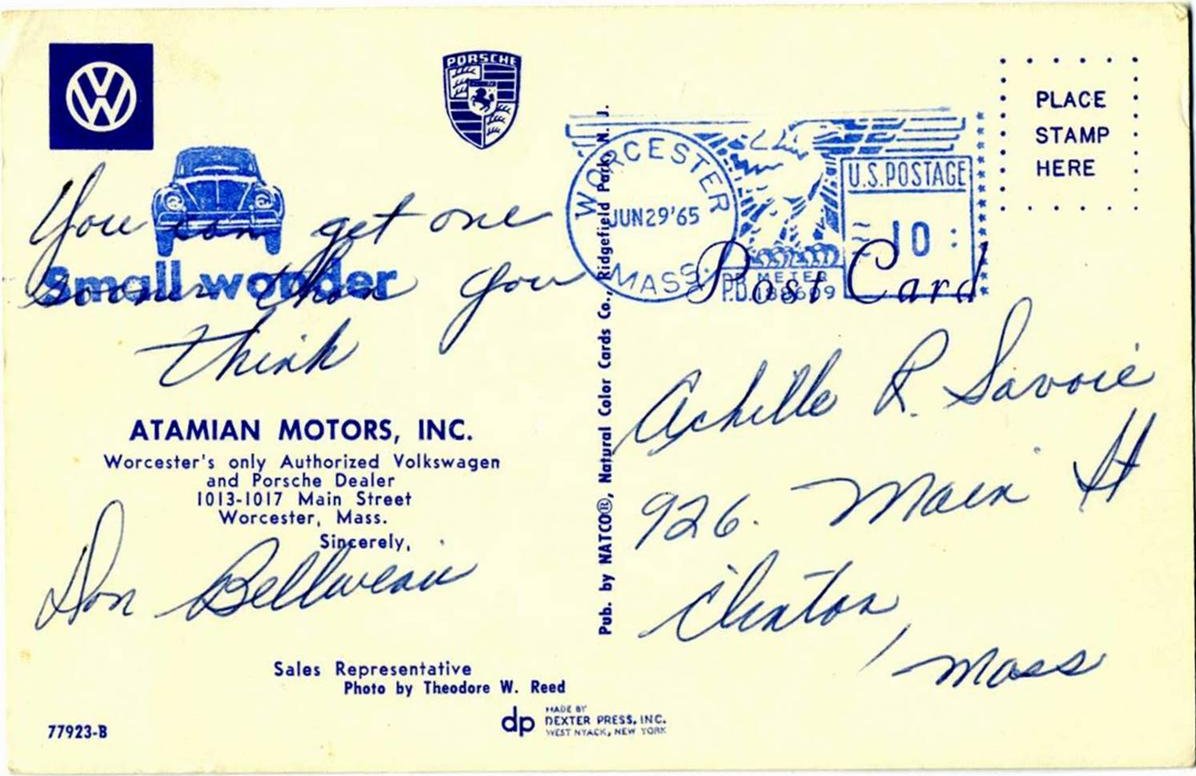 PORSCHE
You can get one
sooner than you
think
Small wonder
ATAMIAN MOTORS, INC.
Worcester's only Authorized Volkswagen
and Porsche Dealer
1013-1017 Main Street
Worcester, Mass.
Sincerely,
Don
Sales Representative
Photo by Theodore W. Reed
77923-B
dp MADE BY
DEXTER PRESS, INC.
WEST NYACK, NEW YORK
Pub. by NATCO®, Natural Color Cards Co., Ridgefield Park, N. J.
WORCESTER
JUN 29 '65
MASS.
U.S. POSTAGE
10
P.B. METER
Post Card
PLACE
STAMP
HERE
Achille R. Savoie
926. Main St
Clinton,
Mass